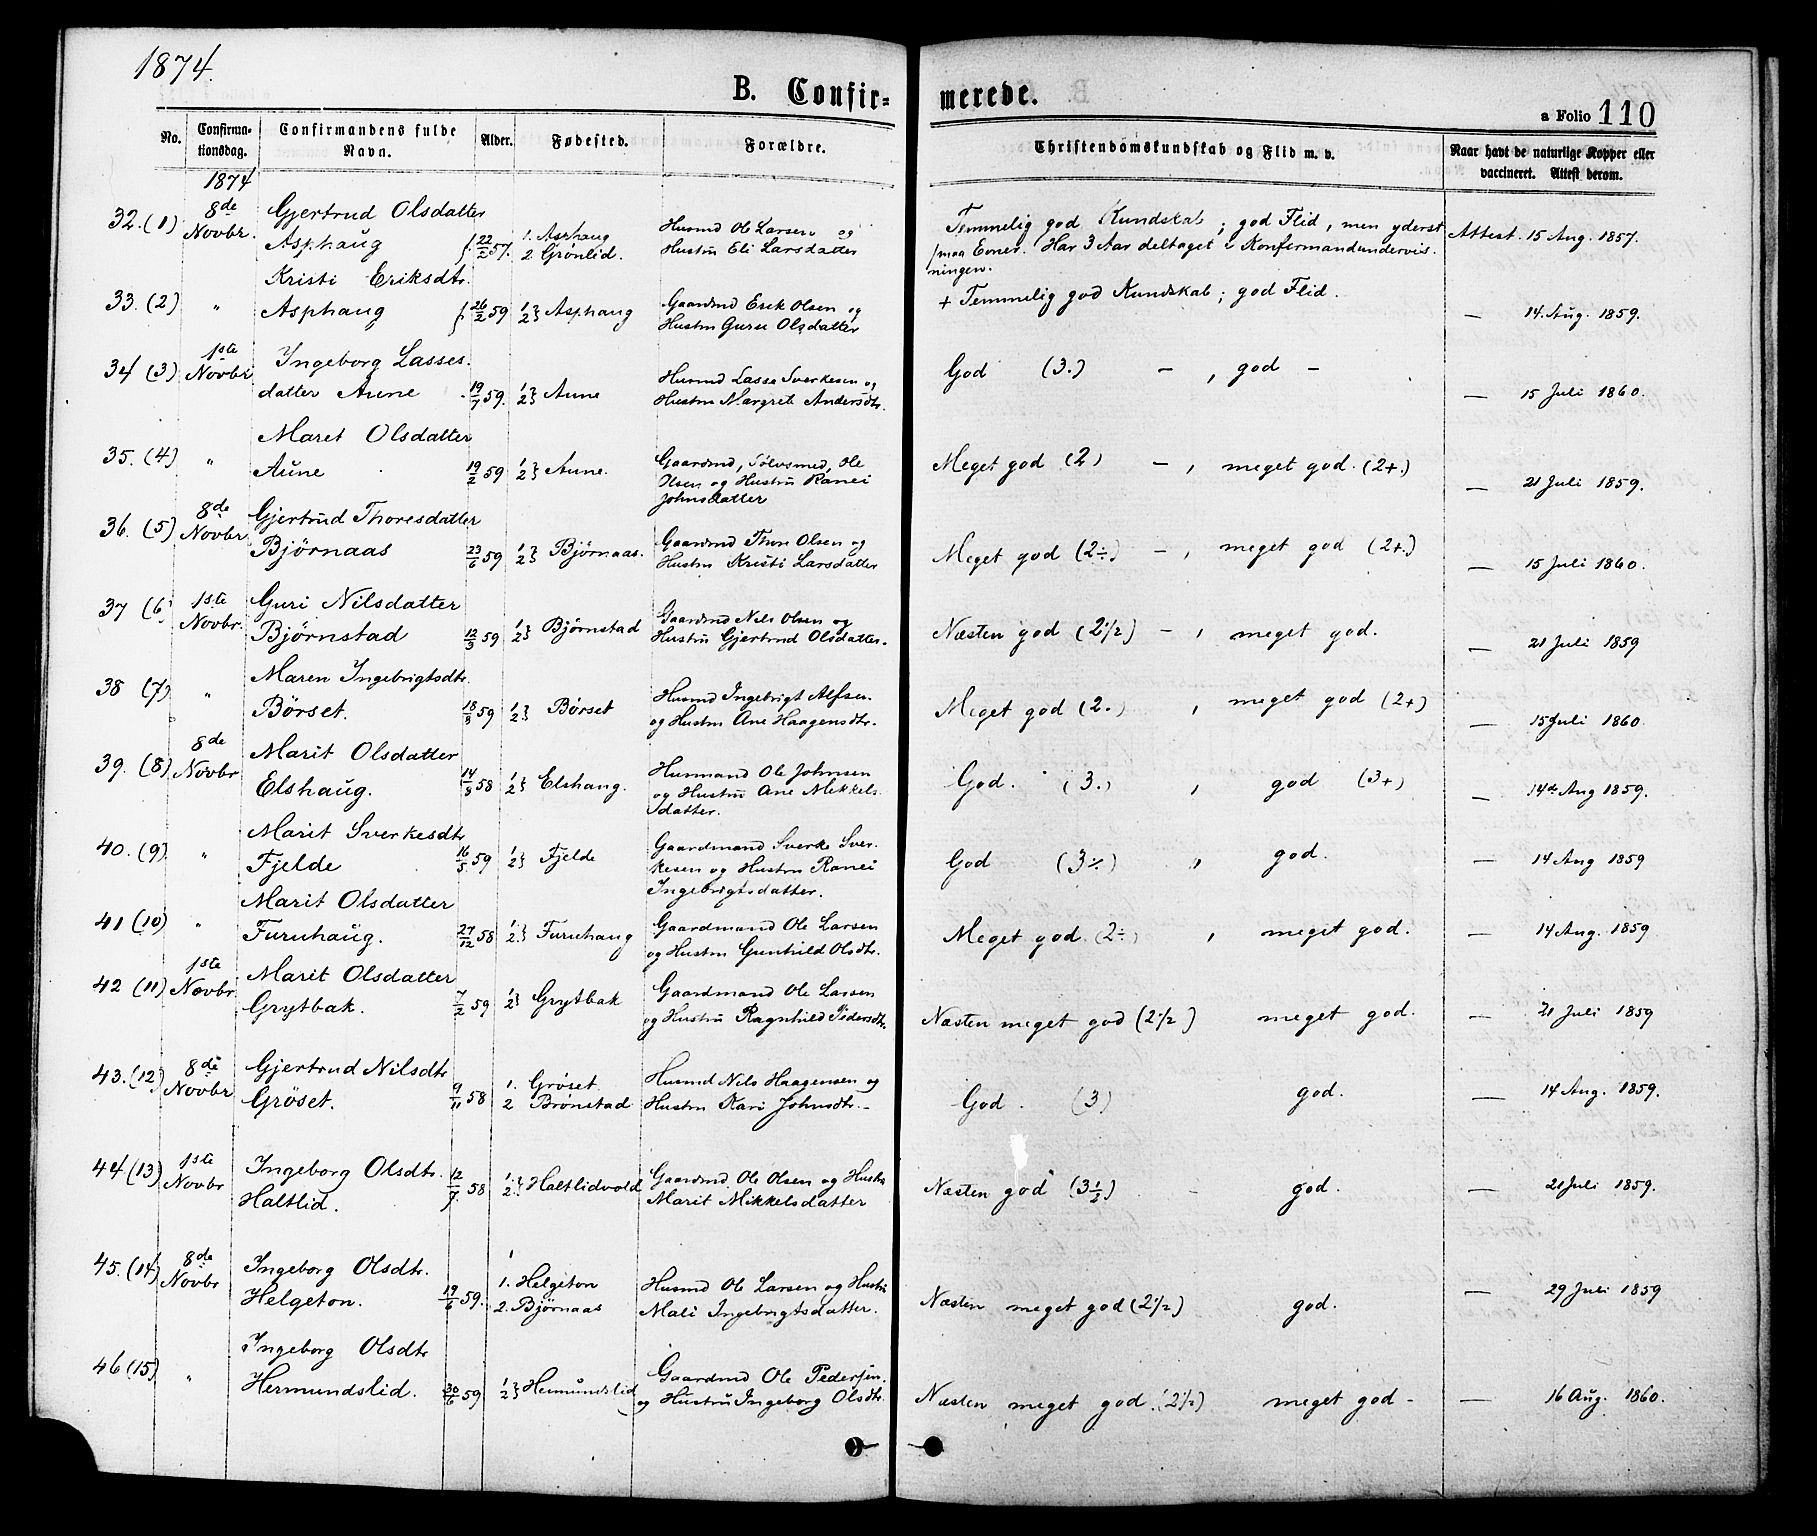 1874.
B. Confir-
merede.
a Folio 110
No.
Confirma-
tionsdag.
Confirmandens fulde
Navn.
Alder.
Fødested.
Forældre.
Christendomskundskab og Flid m. v.
Naar havt de naturlige Kopper eller
vaccineret. Attest derom.
1874
32. (1) 8de Novbr. Gjertrud Olsdatter
Asphaug 22/2 57. 1. Asphaug 2. Grönlid. Husmd Ole Larsen og
Hustru Eli Larsdatter
Temmelig god Kundskab; god Flid, men yderst
smaa Evner. Har 3 Aar deltaget i Konfirmandundervis-
ningen.
Attest. 15 Aug. 1857.
33. (2) " Kristi Eriksdtr.
Asphaug 26/2 59 1 2} Asphaug Gaardmd Erik Olsen og
Hustru Guru Olsdatter
+ Temmelig god Kundskab; god Flid.
— 14. Aug. 1859.
34 (3) 1ste Novbr Ingeborg Lasses-
datter Aune 19/7 59. 1 2} Aune Husmd Lasse Sverkesen og
Hustru Margrete Andersdtr.
God (3.) – , god –
— 15 Juli 1860.
35. (4) " Maret Olsdatter
Aune 19/2 59 1 2} Aune. Gaardmd, Sölvsmed, Ole
Olsen og Hustru Ranei
Johnsdatter
Meget god (2) – , meget god. (2+.)
— 21 Juli 1859.
36. (5) 8de Novbr Gjertrud Thoresdatter
Björnaas 23/6 59 1 2} Björnaas. Gaardmd Thore Olsen og
Hustru Kristi Larsdatter
Meget god (2÷) – , meget god (2+.)
— 15 Juli 1860.
37 (6) 1ste Novbr. Guri Nilsdatter
Björnstad 12/3 59 1 2} Björnstad Gaardmd Nils Olsen og
Hustru Gjertrud Olsdatter.
Næsten god (2 1/2) – , meget god.
— 21 Juli 1859
38 (7) " Maren Ingebrigtsdtr.
Börset. 18/3 59 1 2} Börset Husmd Ingebrigt Alfsen
og Hustru Ane Haagensdtr.
Meget god (2.) , meget god (2+)
— 15 Juli 1860.
39. (8) 8de Novbr Marit Olsdatter
Elshaug. 14/3 58 1 2} Elshaug. Husmand Ole Johnsen
og Hustru Ane Mekkels-
datter.
God. (3.) , god (3+)
— 14de Aug 1859.
40. (9) " Marit Sverkesdtr
Fjelde 16/5 59 1 2} Fjelde Gaardmand Sverke Sver-
kesen og Hustru Ranei
Ingebrigtsdatter.
God (3÷) , god.
— 14 Aug 1859
41 (10) " Marit Olsdatter
Furuhaug. 27/12 58 1 2} Furuhaug Gaardmand Ole Larsen
og Hustru Gunhild Olsdtr.
Meget god. (2÷) , meget god.
— 14 Aug. 1859
42 (11) 1ste Novbr Marit Olsdatter
Grytbak. 7/2 59 1 2} Grytbak Gaardmand Ole Larsen
og Hustru Ragnhild Pedersdtr.
Næsten meget god (2 1/2) meget god.
— 21 Juli 1859
43. (12) 8de Novbr Gjertrud Nilsdtr
Gröset. 9/11 58 1. Gröset. 2 Brönstad Husmd Nils Haagensen og
Hustru Kari Johnsdtr.
God. (3) god.
— 14 Aug. 1859.
44 (13) 1ste Novbr Ingeborg Olsdtr.
Haltlid. 12/7 58 1 2} Haltlidvold Gaardmd. Ole Olsen og Hustru
Marit Mikkelsdatter
Næsten god (3 1/2) – god.
— 21 Juli 1859.
45. (14) 8de Novbr Ingeborg Olsdtr.
Helgeton. 19/6 59. 1. Helgeton 2. Björnaas Husmd Ole Larsen og Hustru
Mali Ingebrigtsdatter.
Næsten meget god (2 1/2) god.
— 29 Juli 1859
46 (15) " Ingeborg Olsdtr
Hermundslid. 30/6 59 1 2} Hermundslid Gaardmd Ole Pedersen
og Hustru Ingeborg Olsdtr.
Næsten meget god. (2 1/2) meget god –
— 16 Aug. 1860.